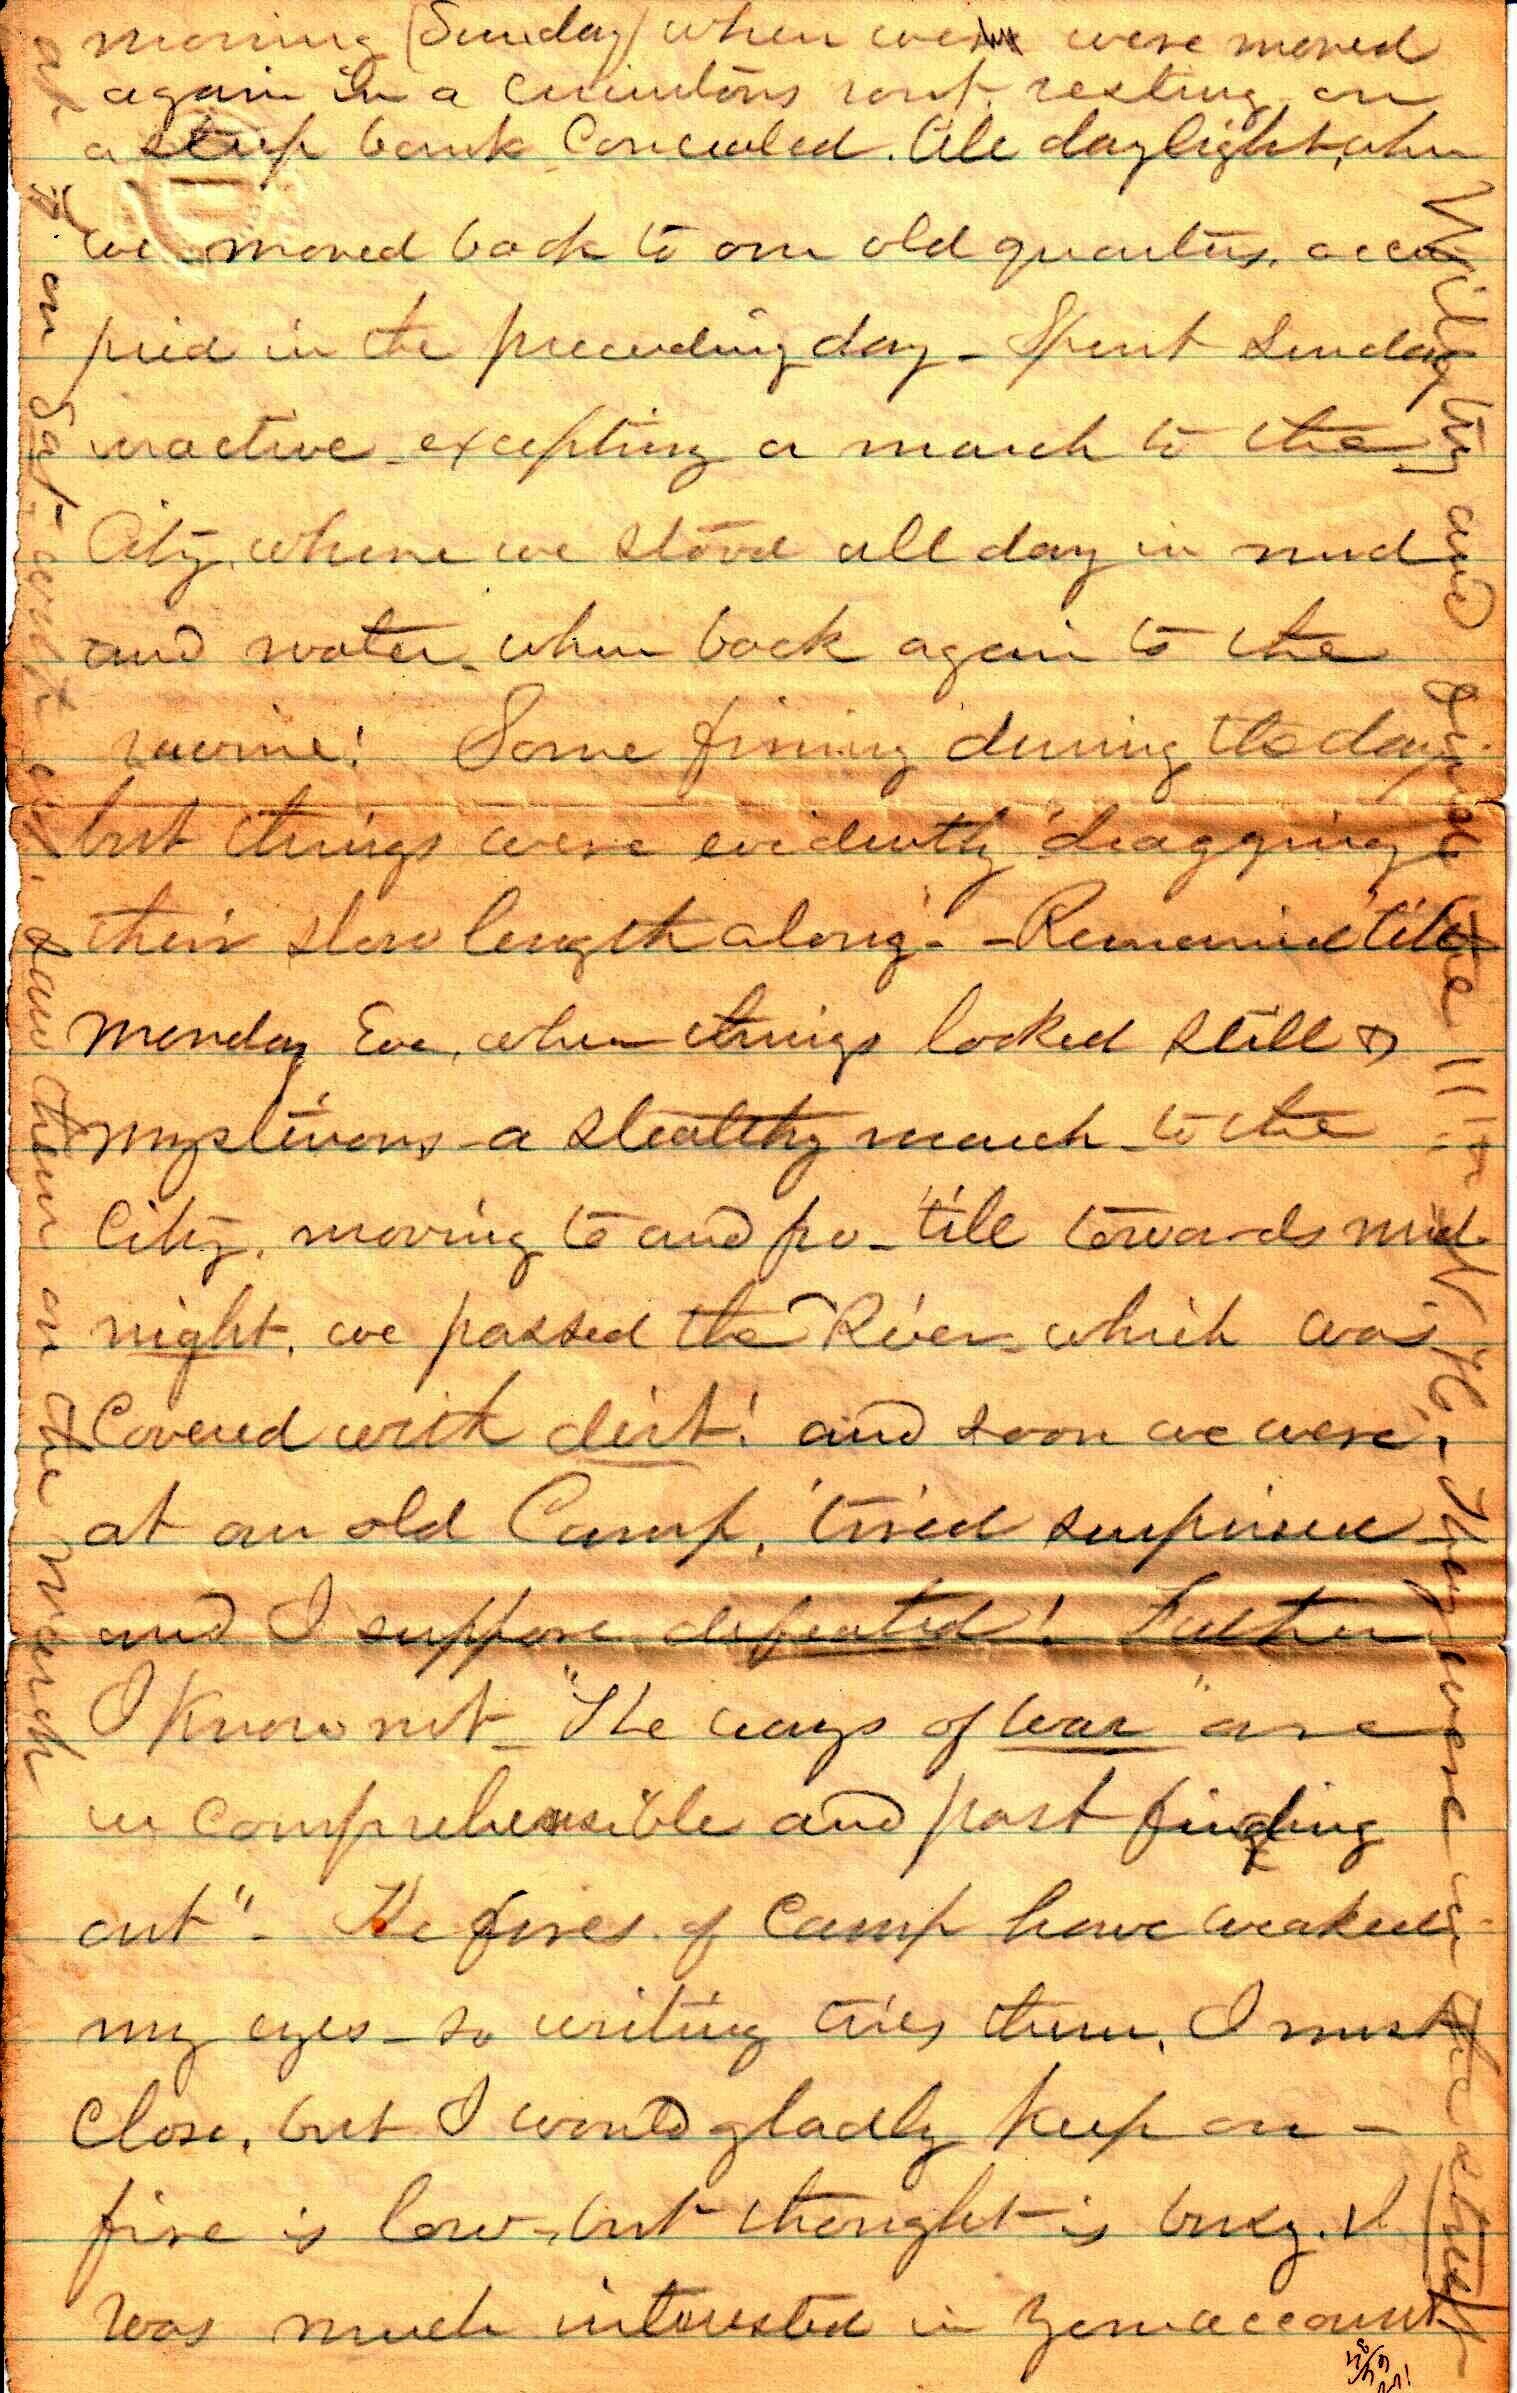 morning (Sunday) when we were moved
again in a rout. resting on
a steep bank concealed. till daylight, when
we moved back to our old quarters. occu
pied in the preceeding day - Spent Sunday
inactive - excepting a march to the
City, where we stood all day in mud
and water - when back again to the
ravine! Some firing during the day.
but things were evidently "dragging
their slow length along" - Remained 'till
Monday Eve, when things looked still &
mysterious - a stealthy march - to the
City, moving to and fro - 'till towards mid
night, we passed the River - which was
Covered with dirt! and soon we were
at our old Camp, tired surprised
and I suppose defeated! Further
I know not - "The ways of war" are
incomprehensible and past finding
out" - The fires of Camp have weakend
my eyes - so writing tires them, I must
close, but I would gladly keep on -
fire is low - but thought is busy. I
was much interested in your account
Wiley and the 11th N. H. - They were in the street
on Sat. saw them on the march